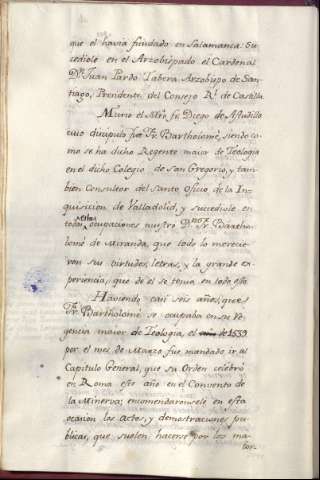 que el havia fundado en Salamanca: Su-
cediole en el Arzobispado el Cardenal
Dn. Juan Pardo Tabera, Arzobispo de San-
tiago, Presidente del Consejo Rl. de Castilla.
Murio el Mro. fr. Diego de Astudillo
cuio discipulo fue Fr. Bartholomé, siendo co-
mo se ha dicho Regente maior de Teologia
en el dicho Colegio de San Gregorio, y tam-
bien Consultor del Santo Oficio de la In-
quisicion de Valladolid, y succediole en
todas estas ocupaciones nuestro Fr. Bartho-
lomé de Miranda, que todo lo merecie-
ron sus virtudes, letras, y la grande ex-
periencia, que de él se tenia en todo esto.
Haviendo casi seis años, que
Fr. Bartholomé se ocupaba en su Re-
gencia maior de Teologia, el de 1539
por el mes de Marzo fue mandado ir al
Capitulo General, que su Orden celebró
en Roma este año en el Convento de
la Minerva; encomendaronsele en esta
ocasion los Actos, y demostraciones pu-
blicas, que suelen hacerse por los ma-